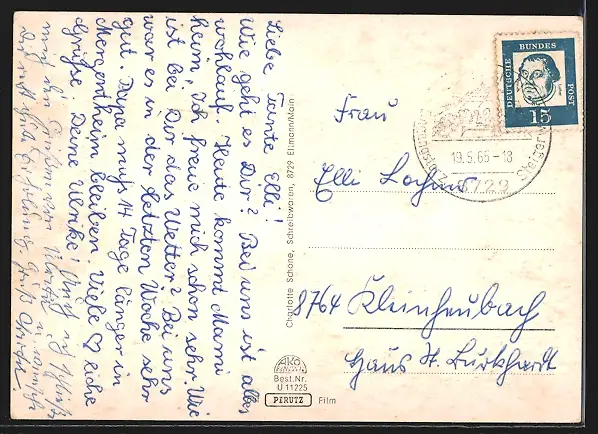 Liebe Tante Elli!
Wie geht es Dir? Bei uns ist alles
wohlauf. Heute kommt Mami
heim. Ich freue mich schon sehr. Wie
ist bei Dir das Wetter? Bei uns
war es in der letzten Woche sehr
gut. Papa muß 14 Tage länger in
Mergentheim bleiben. Viele liebe
Grüße Deine Ulrike!
Charlotte Schöne, Schreibwaren, 8729 Eltmann/Main
AKO
Best.Nr.
U 11225
PERUTZ Film
DEUTSCHE BUNDESPOST
15
19.5.65-18
8729
Frau
Elli
8764 Kleinheubach
Haus St. Burkhardt